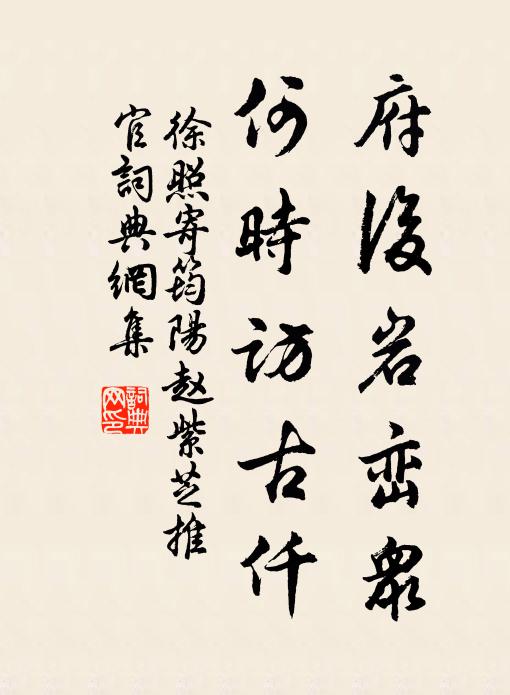 府後岩峦衆
何時訪古仟
徐照寄筠陽赵紫芝推
官詞典網集
詞典
网印